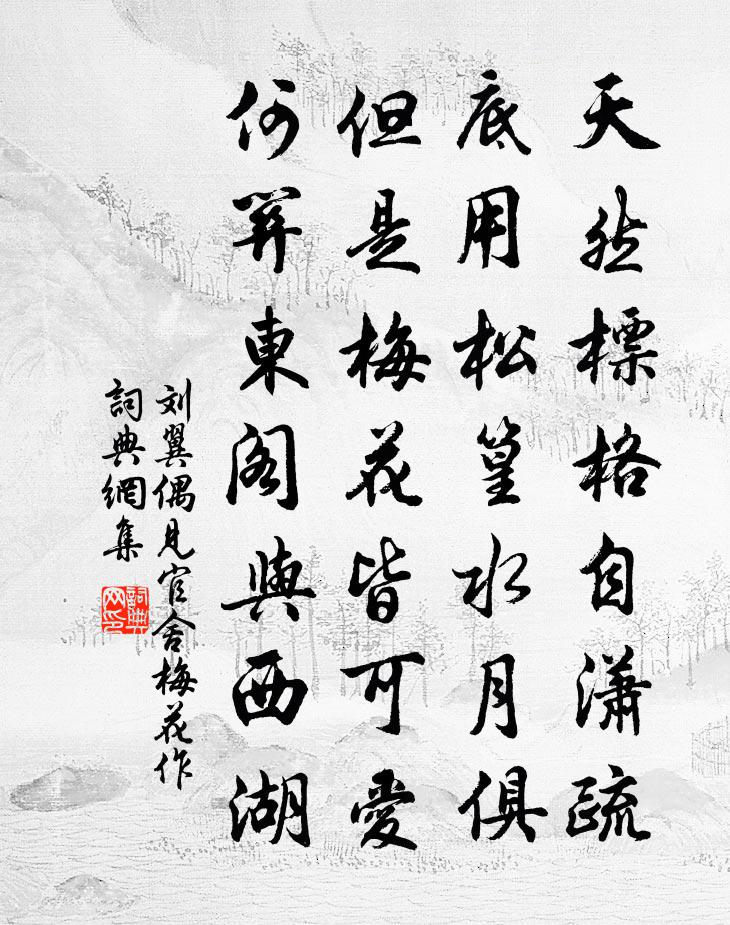 天然標格自瀟疏
底用松篁水月俱
但是梅花皆可愛
何算東閣與西湖
刘翼偶見官舍梅花作
詞典網集
詞典网印